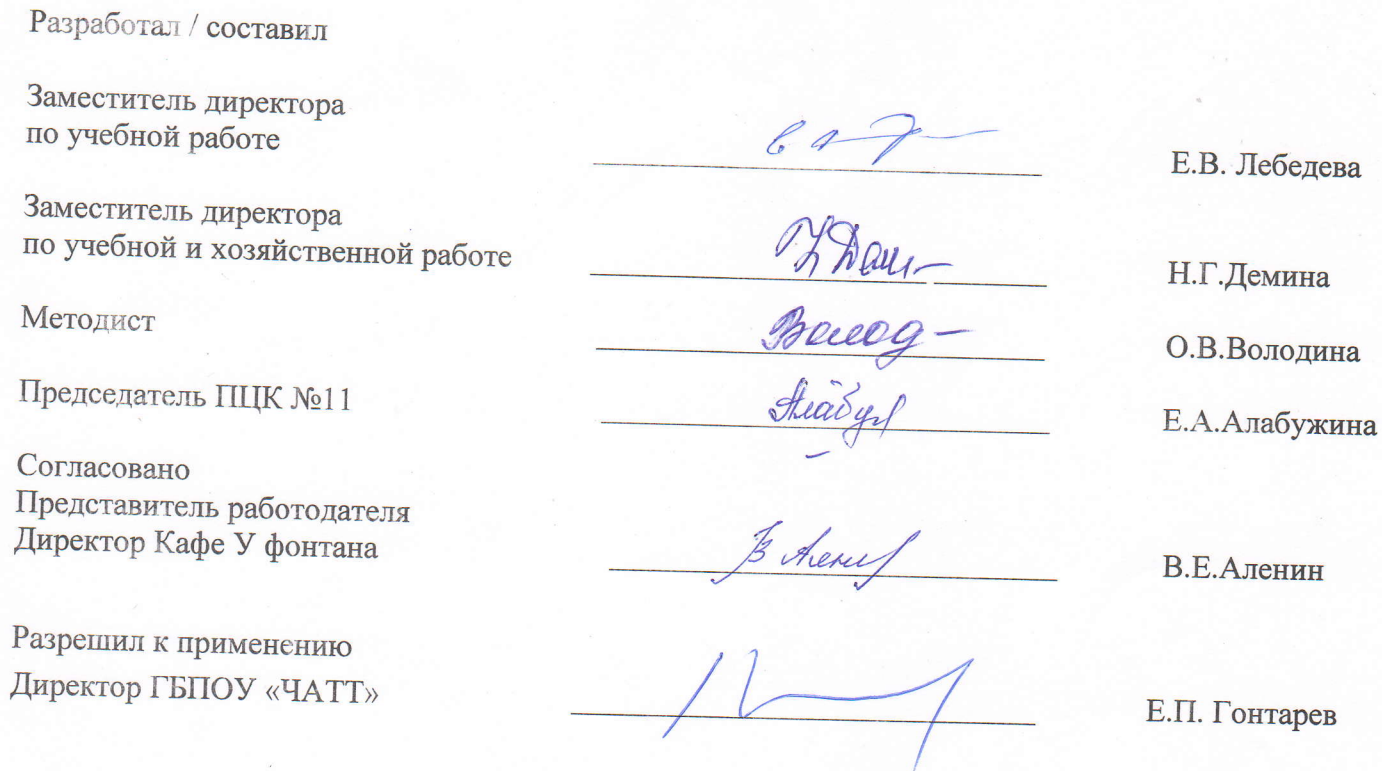 Разработал / составил
Заместитель директора
по учебной работе
Е.В. Лебедева
Заместитель директора
по учебной и хозяйственной работе
Н.Г.Демина
Методист
О.В.Володина
Председатель ПЦК №11
Е.А.Алабужина
Согласовано
Представитель работодателя
Директор Кафе У фонтана
В.Е.Аленин
Разрешил к применению
Директор ГБПОУ «ЧАТТ»
Е.П. Гонтарев